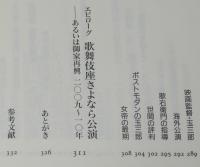 289
映画監督・玉三郎 291
海外公演 292
歌右衛門の指導 295
世間の評判 302
ポストモダンの玉三郎 304
女帝の最期 308
エピローグ 歌舞伎座さよなら公演 311
――あるいは御家再興 二〇〇九〜一〇年
あとがき 326
参考文献 332